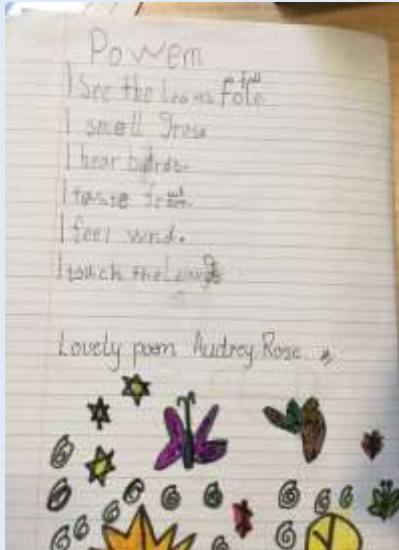 Powem
I See the Leaves Fole
fall
I smell Grass
I hear byrds.
I taste
I feel wnd.
I touch the
Lovely poem Audrey Rose